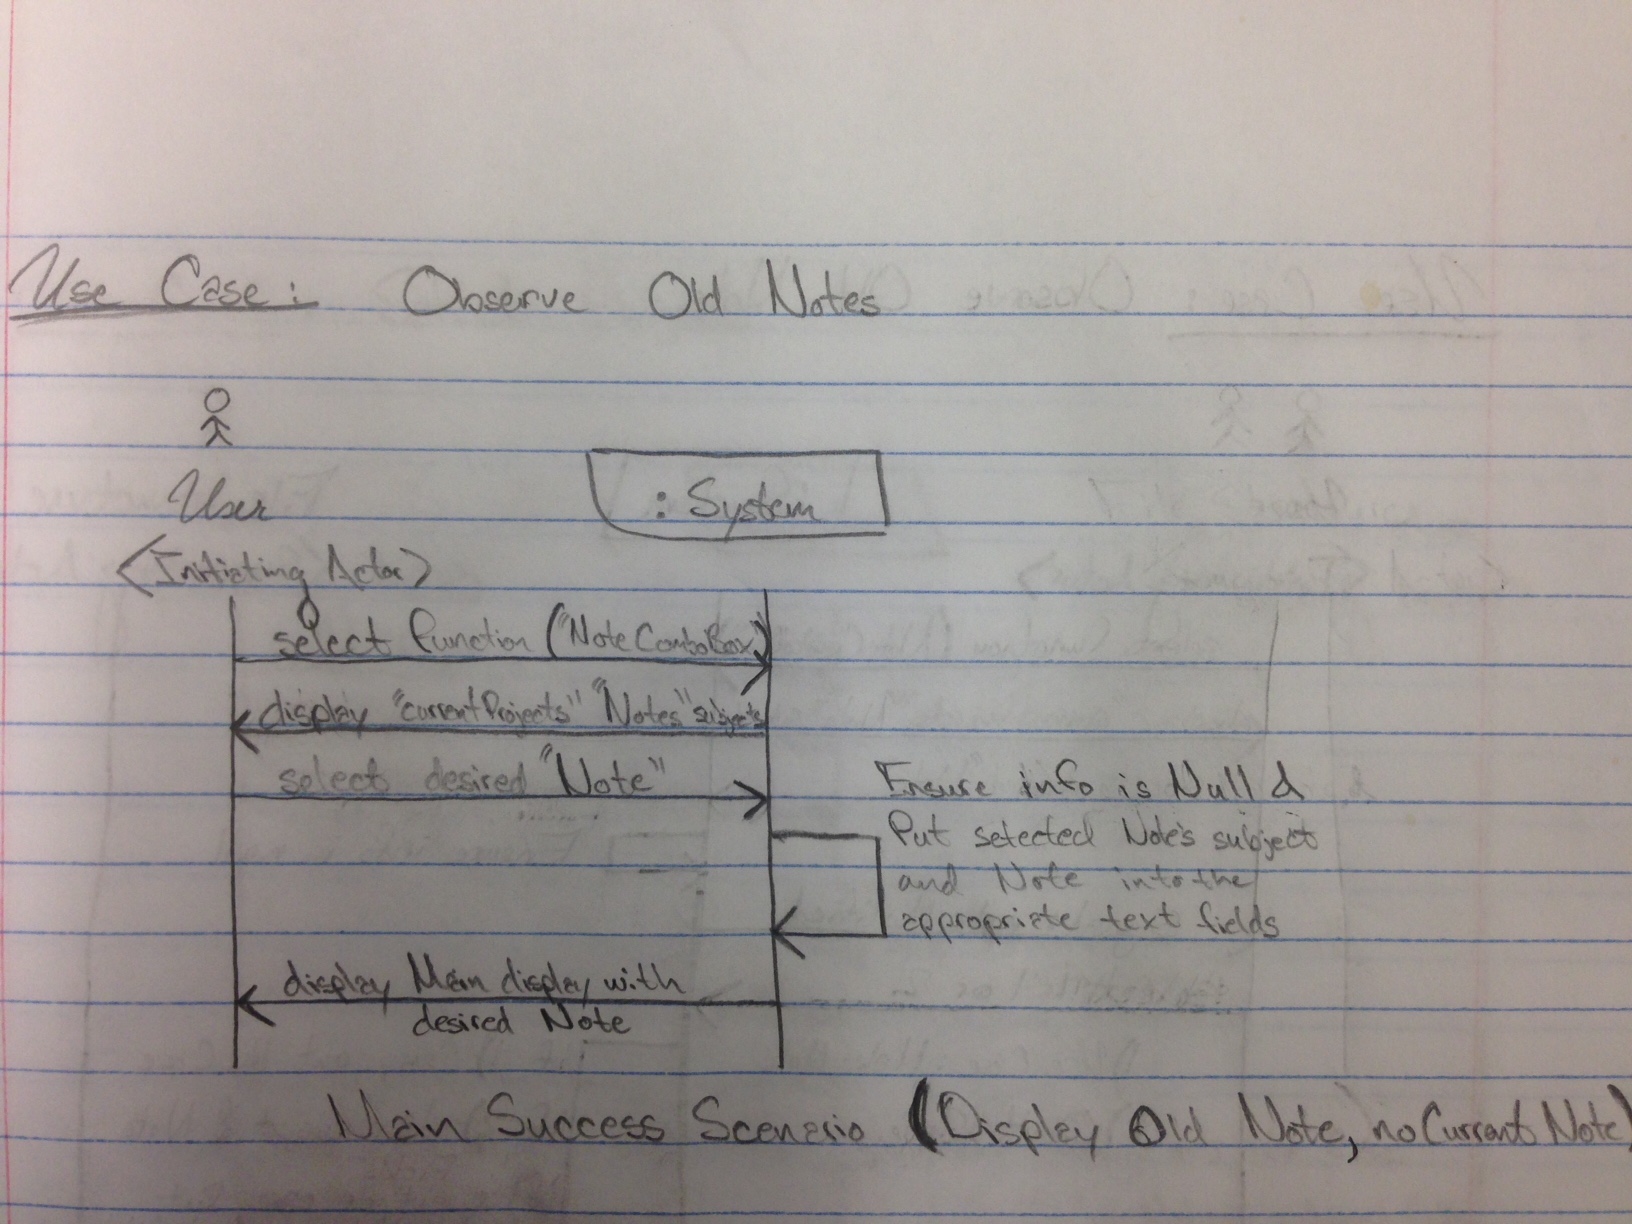 Use Case: Observe Old Notes
User
: System
<Initiating Actor>
select function ("NoteComboBox")
display "currentProjects" "Notes" subjects
select desired "Note"
Ensure info is Null &
Put selected Note's subject
and Note into the
appropriate text fields
display Main display with
desired Note
Main Success Scenario (Display Old Note, no Current Note)